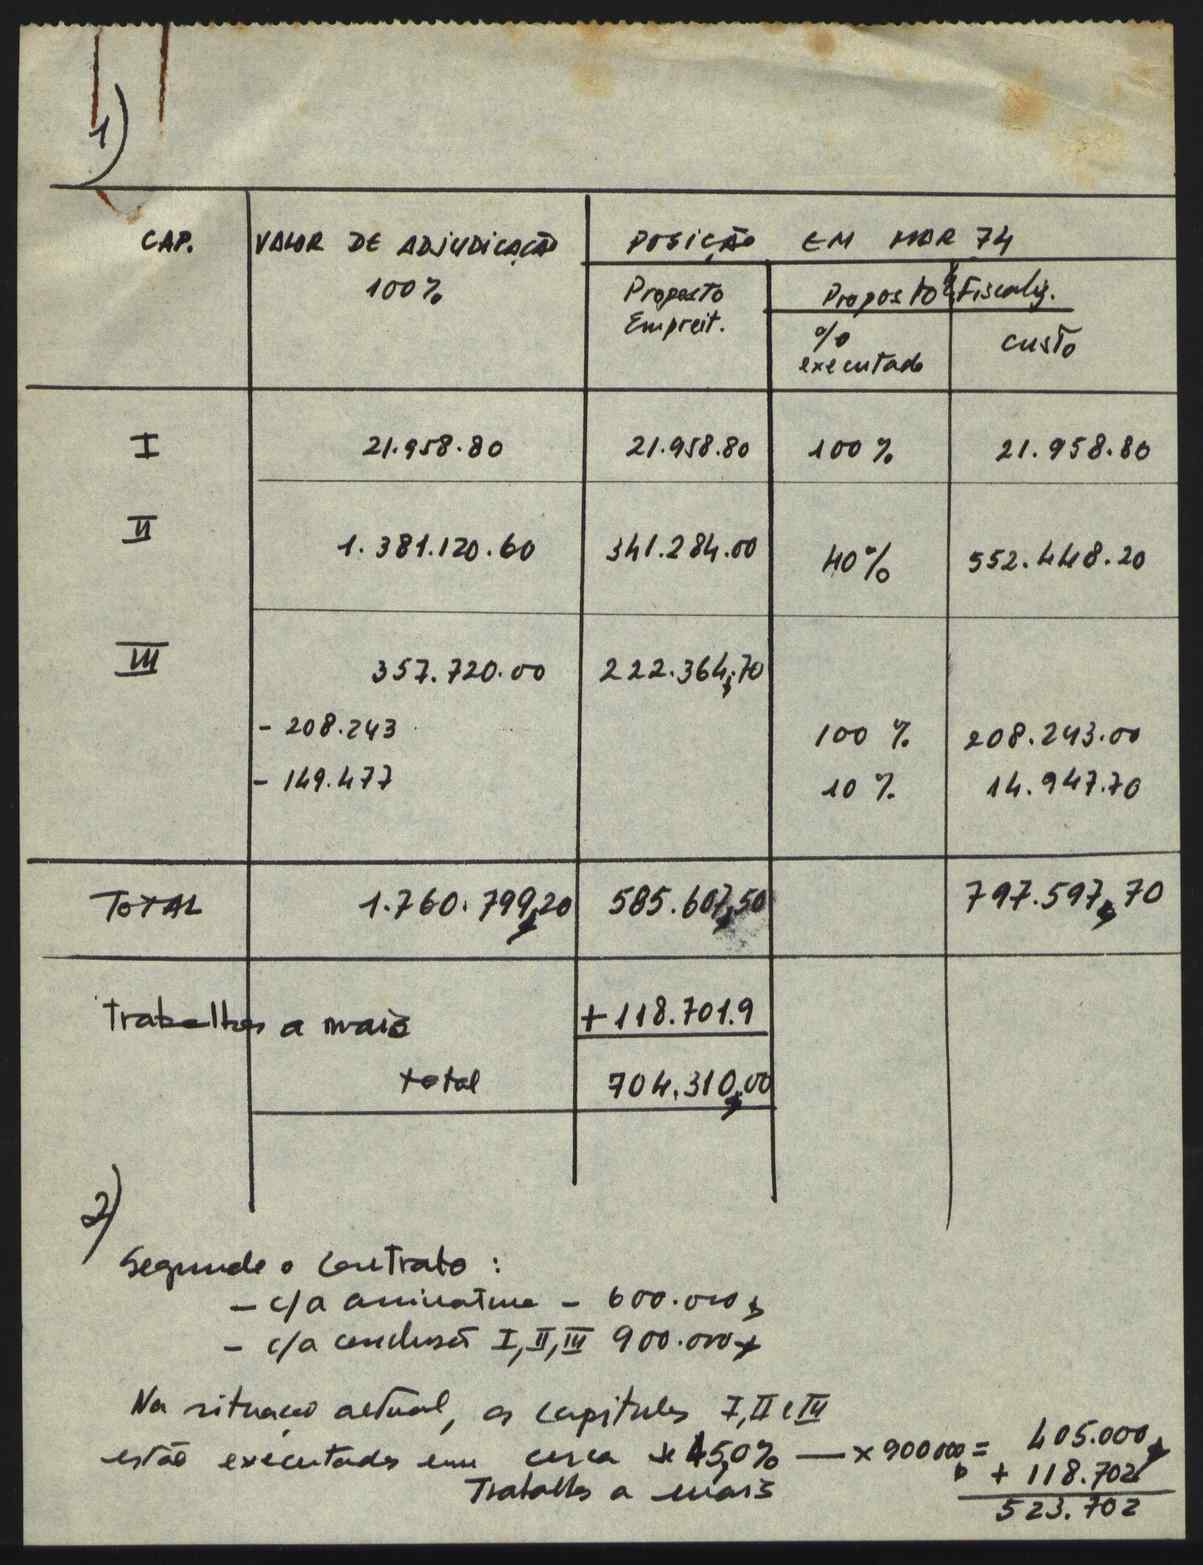 1)
CAP. VALOR DE ADJUDICAÇÃO POSIÇÃO EM MAR 74
100% Proposto Proposto p/ Fiscaliz.
Empreit. % custo
executado
I 21.958.80 21.958.80 100% 21.958.80
II 1.381.120.60 341.284.00 40% 552.448.20
III 357.720.00 222.364$70
- 208.243 100% 208.243.00
- 149.477 10% 14.947.70
TOTAL 1.760.799$20 585.607$50 797.597$70
Trabalhos a mais +118.701.9
total 704.310$00
2)
Segundo o contrato:
- c/a assinatura - 600.000$
- c/a conclusão I, II, III 900.000$
Na situação actual, os capitulos I, II e III
estão executados em cerca de 45,0% — x 900000$ = 405.000$
Trabalhos a mais + 118.702$
523.702